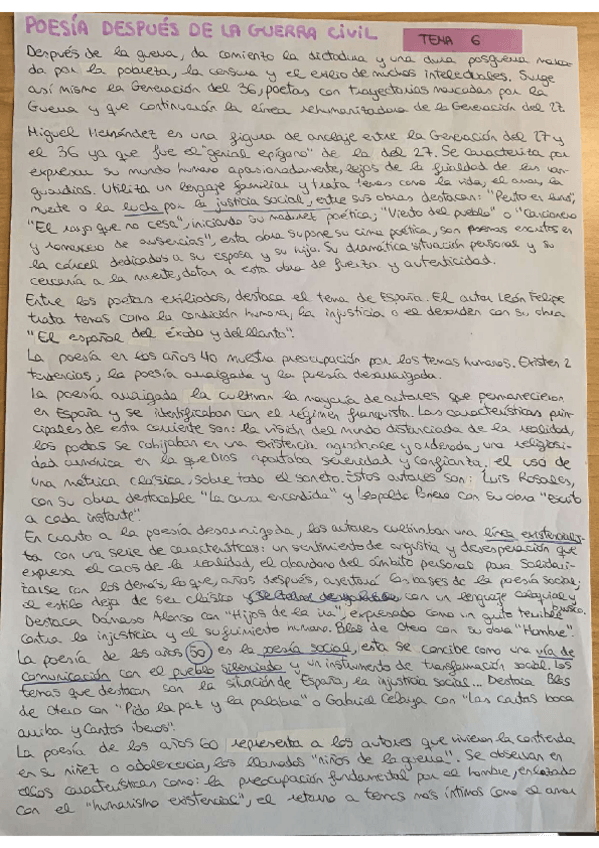 POESÍA DESPUÉS DE LA GUERRA CIVIL
TEMA 6
Después de la guerra, da comienzo la dictadura y una dura posguerra marca-
da por la pobreza, la censura y el exilio de muchos intelectuales. Surge
así mismo la Generación del 36, poetas con trayectorias marcadas por la
Guerra y que continuarán la línea rehumanizadora de la Generación del 27
Miguel Hernández es una figura de anclaje entre la Generación del 27 y
el 36 ya que fue el "genial epígono" de la del 27. Se caracteriza por
expresar su mundo humano apasionadamente, lejos de la frialdad de las van-
guardias. Utiliza un lenguaje familiar y trata temas como la vida, el amor, la
muerte o la lucha por la justicia social, entre sus obras destacan: "Perito en lunas",
"El rayo que no cesa", iniciando su madurez poética; "Viento del pueblo" o "Cancionero
y romancero de ausencias", esta obra supone su cima poética, son poemas escritos en
la cárcel dedicados a su esposa y su hijo. Su dramática situación personal y su
cercanía a la muerte, dotan a esta obra de fuerza y autenticidad.
Entre los poetas exiliados, destaca el tema de España. El autor León Felipe
trata temas como la condición humana, la injusticia o el desorden con su obra
"El español del éxodo y del llanto".
La poesía en los años 40 muestra preocupación por los temas humanos. Existen 2
tendencias, la poesía arraigada y la poesía desarraigada.
La poesía arraigada la cultivan la mayoría de autores que permanecieron
en España y se identificaban con el régimen franquista. Las características prin-
cipales de esta corriente son: la visión del mundo distanciada de la realidad,
los poetas se cobijaban en una existencia agradable y ordenada, una religiosi-
dad armónica en la que Dios aportaba serenidad y confianza. el uso de
una métrica clásica, sobre todo el soneto. Estos autores son: Luis Rosales,
con su obra destacable "La casa encendida" y Leopoldo Panero con su obra "Escrito
a cada instante".
En cuanto a la poesía desarraigada, los autores cultivaban una línea existencialis-
ta con una serie de características: un sentimiento de angustia y desesperación que
expresa el caos de la realidad, el abandono del ámbito personal para solidari-
zarse con los demás, lo que, años después, asentará las bases de la poesía social;
el estilo deja de ser clásico y con un lenguaje coloquial y
brusco.
Destaca Dámaso Alonso con "Hijos de la ira", expresado como un grito terrible
contra la injusticia y el sufrimiento humano. Blas de Otero con su obra "Hombre".
La poesía de los años 50 es la poesía social, esta se concibe como una vía de
comunicación con el pueblo silenciado y un instrumento de transformación social. Los
temas que destacan son la situación de España, la injusticia social... Destaca Blas
de Otero con "Pido la paz y la palabra" o Gabriel Celaya con "Las cartas boca
arriba y Cantos iberos".
La poesía de los años 60 representa a los autores que vivieron la contienda
en su niñez o adolescencia, los llamados "niños de la guerra". Se observan en
ellos características como: la preocupación fundamental por el hombre, enlazado
con el "humanismo existencial", el retorno a temas más íntimos como el amor